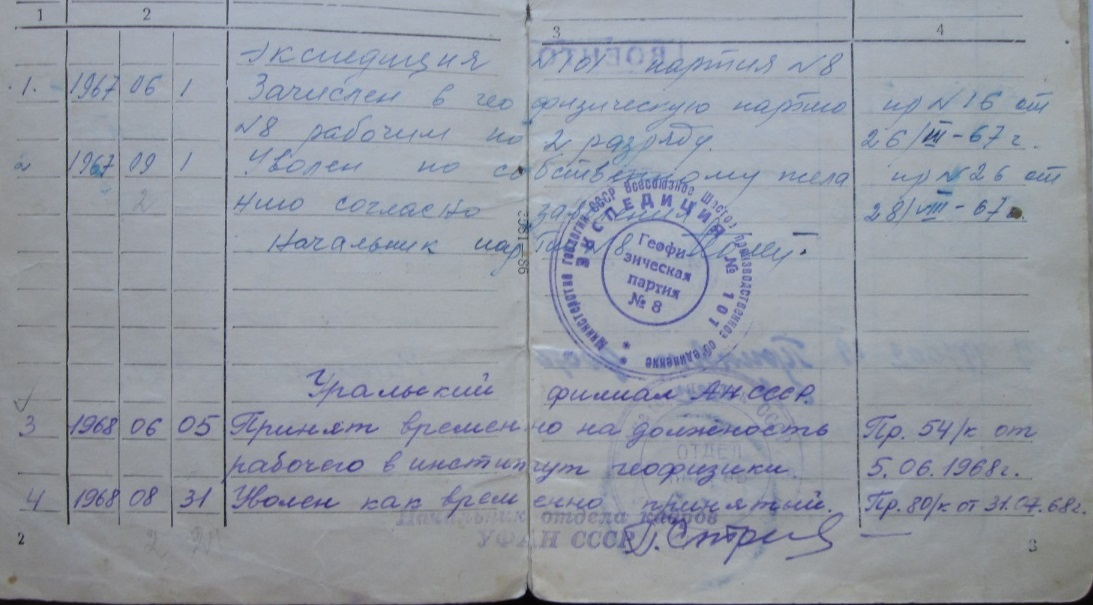 1 2 3 4
Экспедиция №101 партия №8
1. 1967 06 1 Зачислен в геофизическую партию пр №16 от
№8 рабочим по 2 разряду. 26/III-67г.
2 1967 09 1 Уволен по собственному жела пр №26 от
нию согласно 28/VIII-67г.
Начальник партии №8
Министерство геологии СССР Всесоюзное производственное объединение
ЭКСПЕДИЦИЯ № 101
Геофи
зическая
партия
№ 8
Уральский филиал АН СССР.
3 1968 06 05 Принят временно на должность Пр. 54/к от
рабочего в институт геофизики. 5.06.1968г.
4 1968 08 31 Уволен как временно принятый. Пр. 80/к от 31.07.68г.
ОТДЕЛ
Начальник отдела кадров
УФАН СССР
2 3